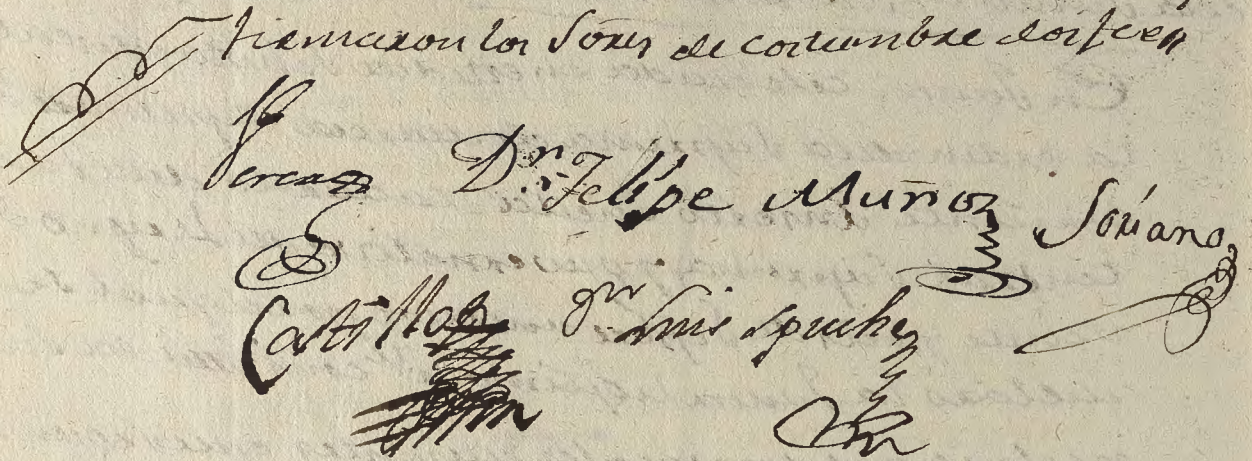 firmaron los Sores de costumbre doi fee
Perea Dn. Felipe Muñoz Soriano
Castillo Dn Luis Puche